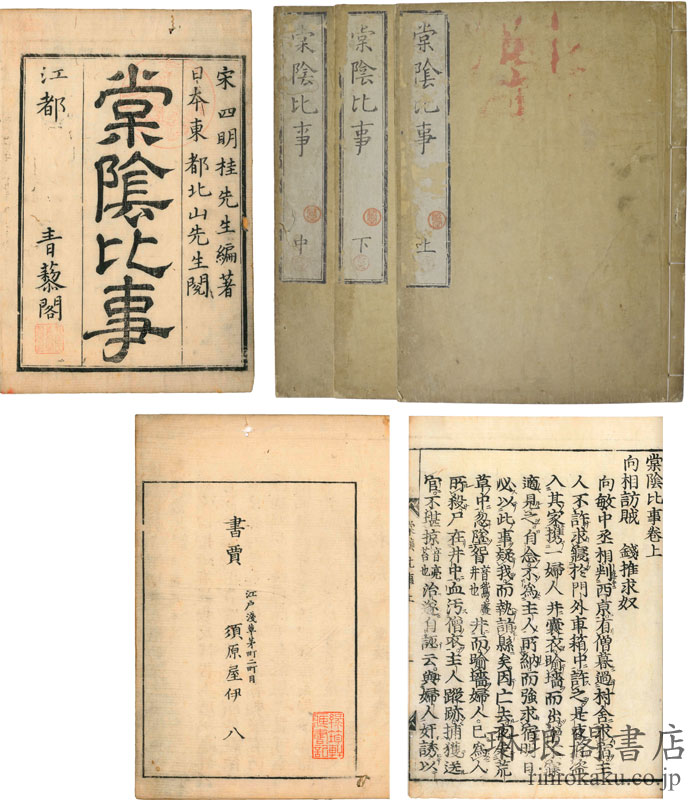 宋四明桂先生編著
日本東都北山先生閲
棠陰比事
江都 青藜閣
棠陰比事 上
棠陰比事 下
棠陰比事 中
書賈
江戸淺草茅町二町目
須原屋伊八
棠陰比事卷上
向相訪賊 錢推求奴
向敏中丞相判西京有僧暮過村舍求宿主
人不許求寢於門外車箱中許之是夜有盗
入其家携一婦人并囊衣踰墻而出僧不寐
適見之自念不爲主人所納而強求宿明日
必以此事疑我而執詣縣矣因亡去夜走荒
草中忽墮眢井而踰墻婦人已爲人
所殺尸在井中血汚僧衣主人蹤跡捕獲送
官不堪掠治遂自誣云與婦人奸誘以
琳琅閣書店
rinrokaku.co.jp